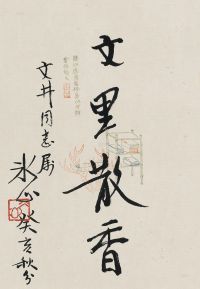 文里散香
文井同志属
冰心 癸亥秋分